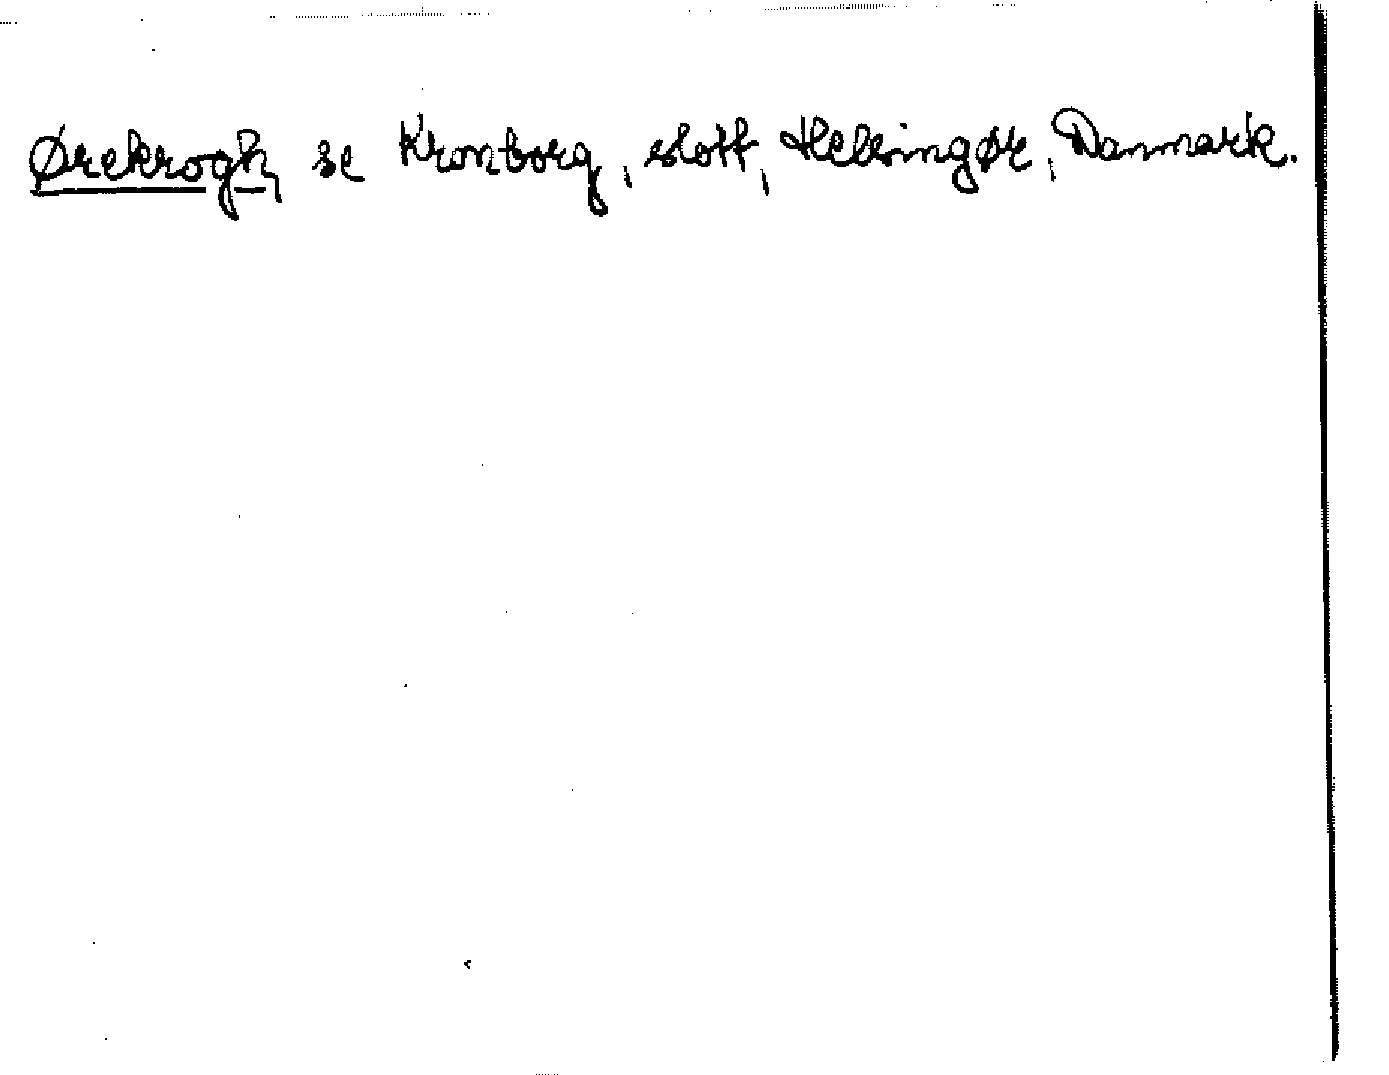 Ørekrogh, se Kronborg, slott, Helsingør, Danmark.